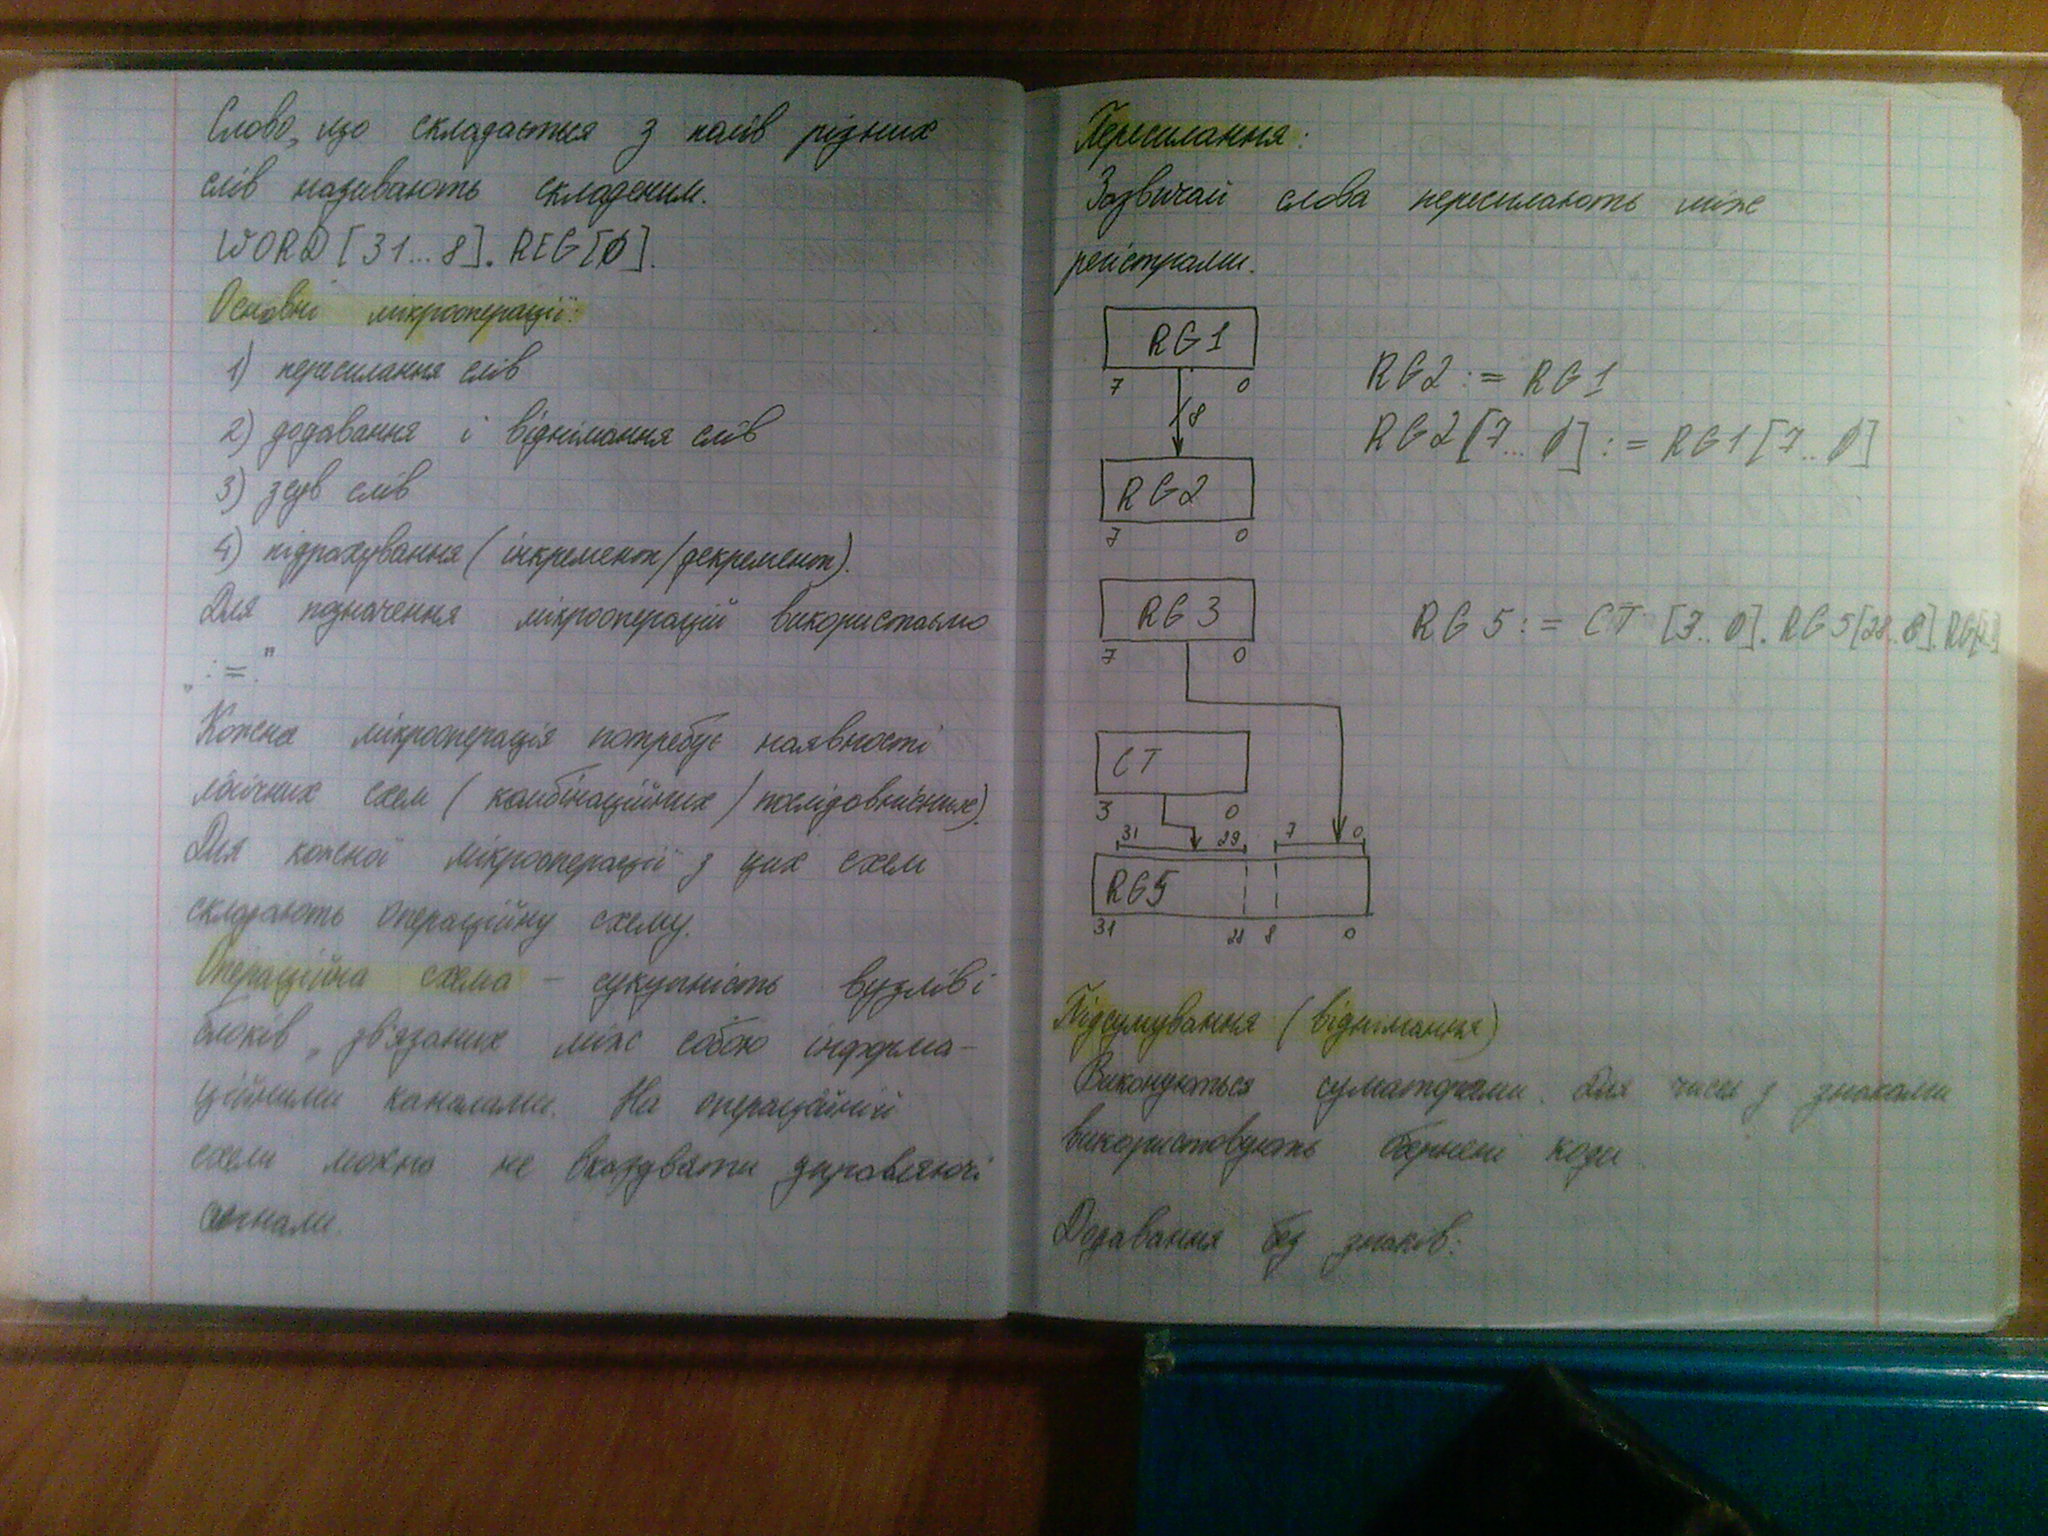 Слово, що складається з полів різних
слів називають складеним.
WORD [31...8]. REG[0].
Основні мікрооперації:
1) пересилання слів
2) додавання і віднімання слів
3) зсув слів
4) підрахування (інкремент/декремент).
Для позначення мікрооперацій використаємо
„:=."
Кожна мікрооперація потребує наявності
логічних схем (комбінаційних / послідовнісних).
Для кожної мікрооперації з цих схем
складають операційну схему.
Операційна схема – сукупність вузлів і
блоків, зв'язаних між собою інформа-
ційними каналами. На операційній
схемі можна не вказувати управляючі
сигнали.
Пересилання:
Зазвичай слова пересилають між
регістрами.
RG1
7 0
8
RG2
7 0
RG2 := RG1
RG2[7...0] := RG1[7..0]
RG3
7 0
RG5 := CT [3..0]. RG5[28..8].
CT
3 0
31 29 7 0
RG5
31 28 8 0
Підсумування (віднімання)
Виконуються суматорами. Для чисел з знаками
використовують обернені коди
Додавання без знаків: